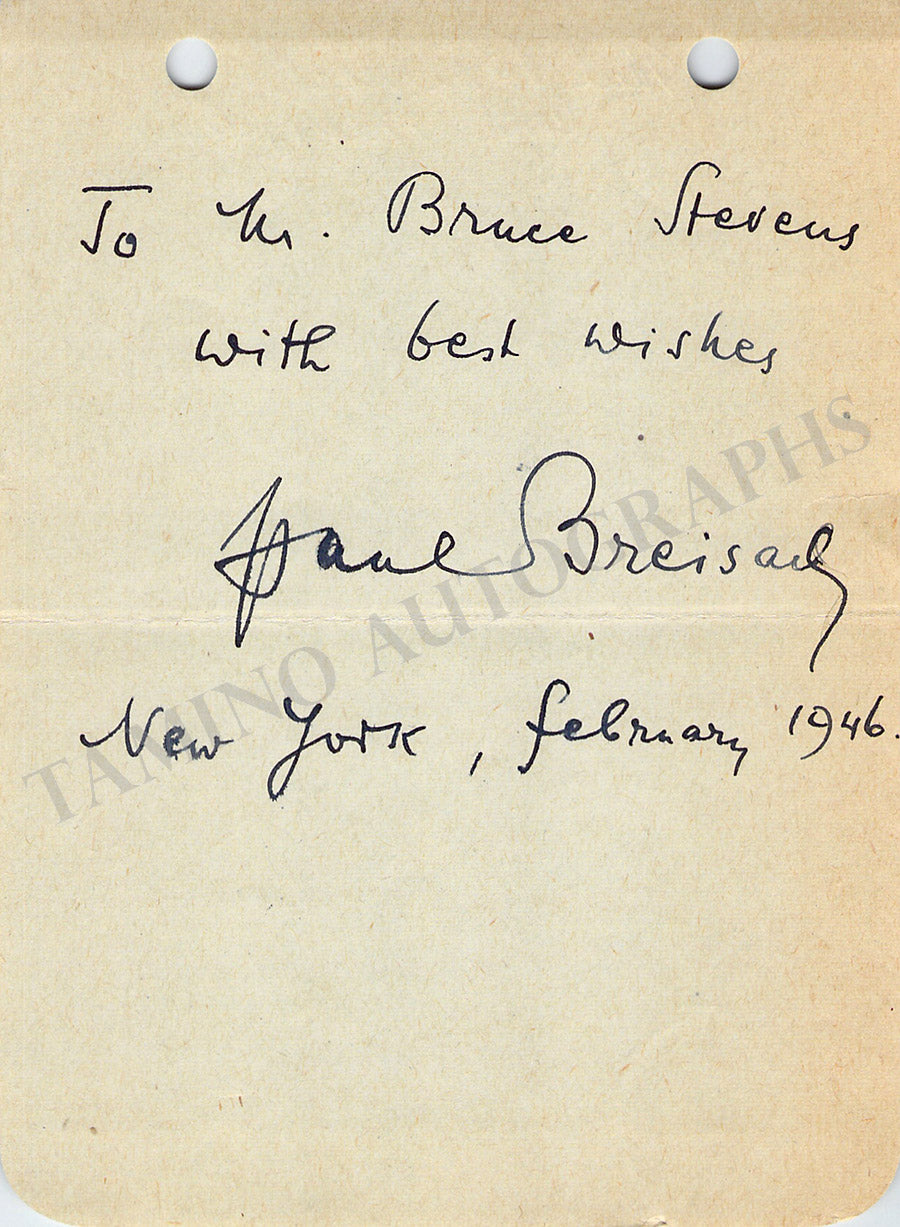 To Mr. Bruce Stevens
with best wishes
Paul Breisach
New York, february 1946.
TAMINO AUTOGRAPHS